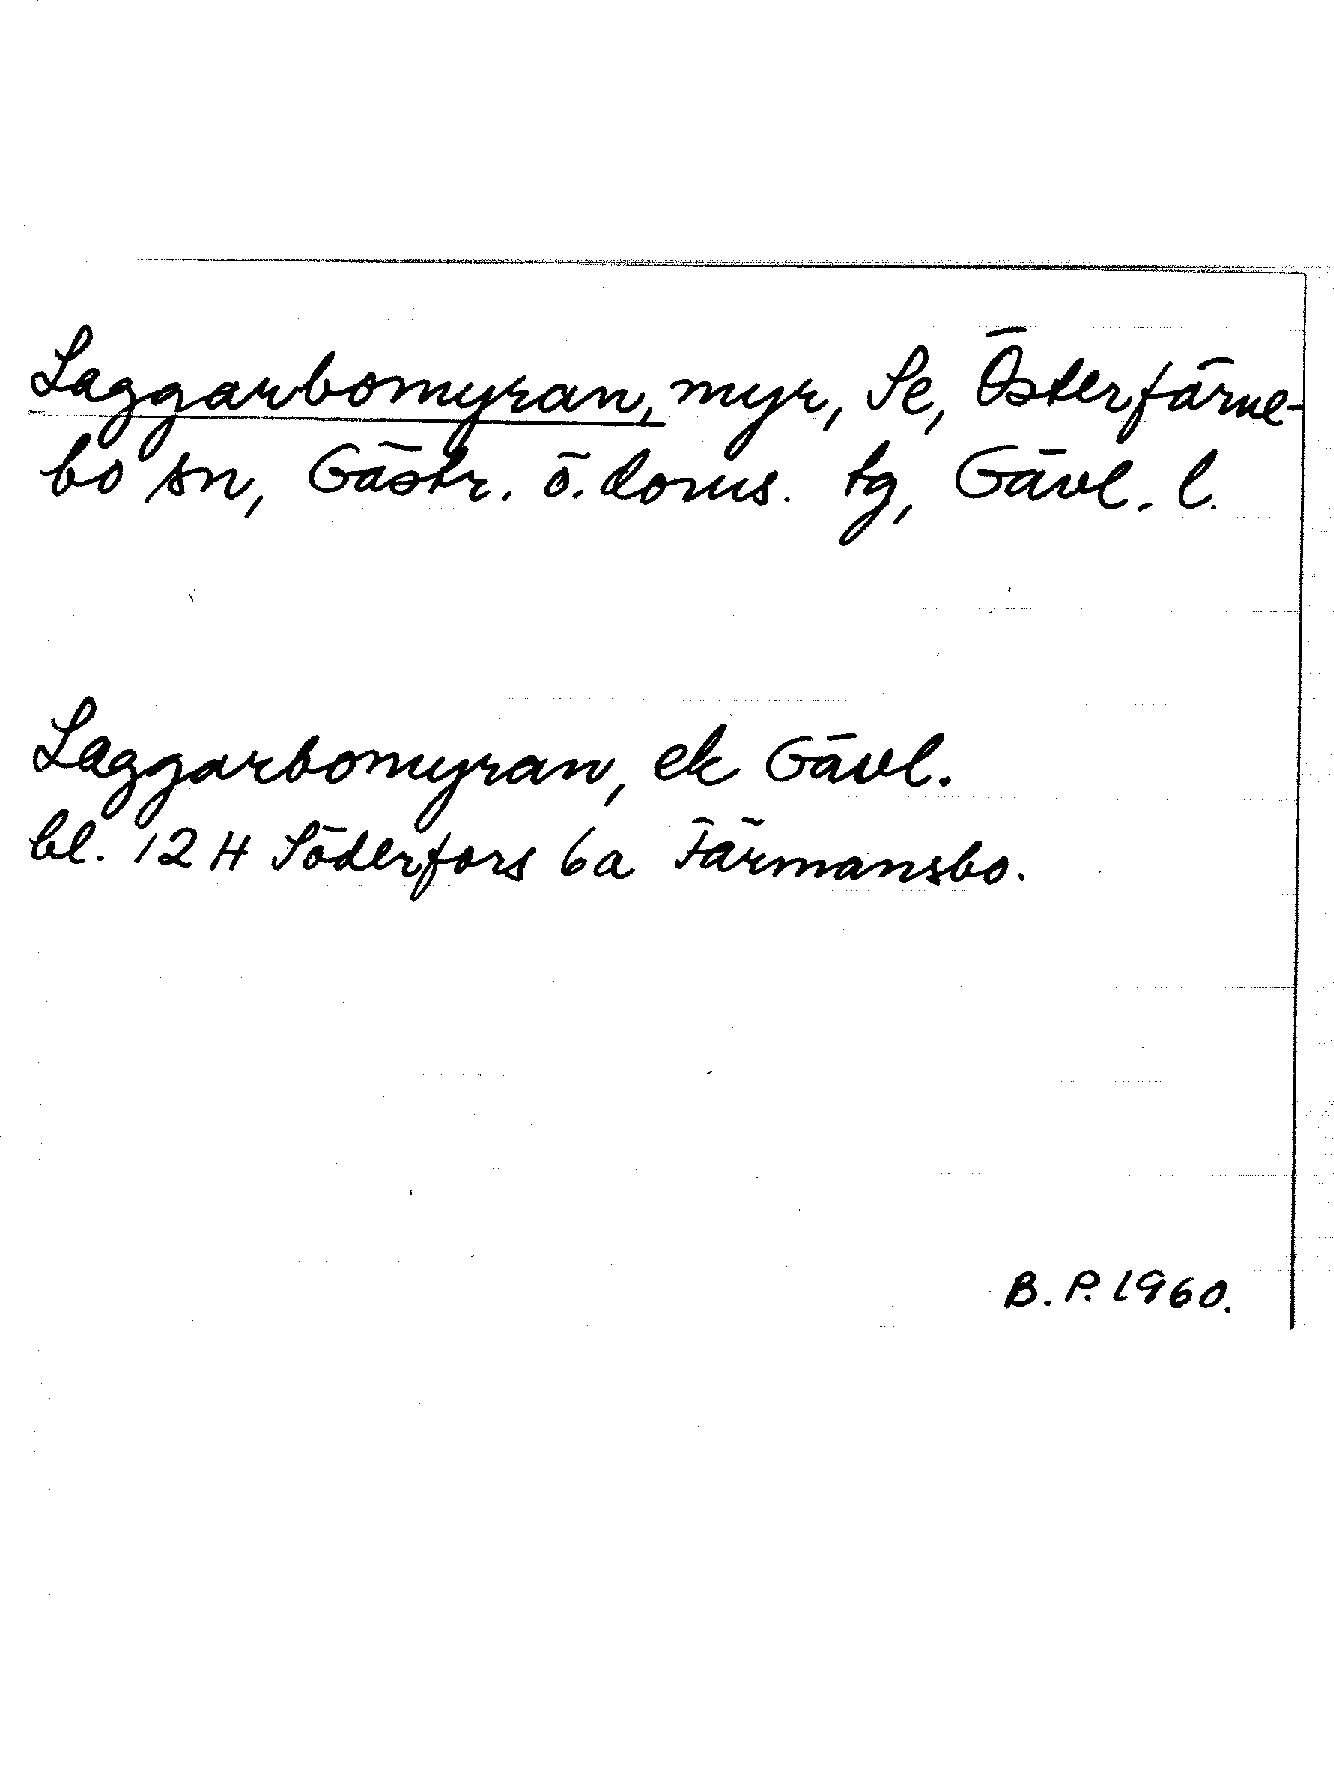 Laggarbomyran, myr, Se, Österfärne-
bo sn, Gästr. ö. doms. tg, Gävl. l.
Laggarbomyran, ek Gävl.
bl. 12 H Söderfors 6a Färmansbo.
B. P. 1960.